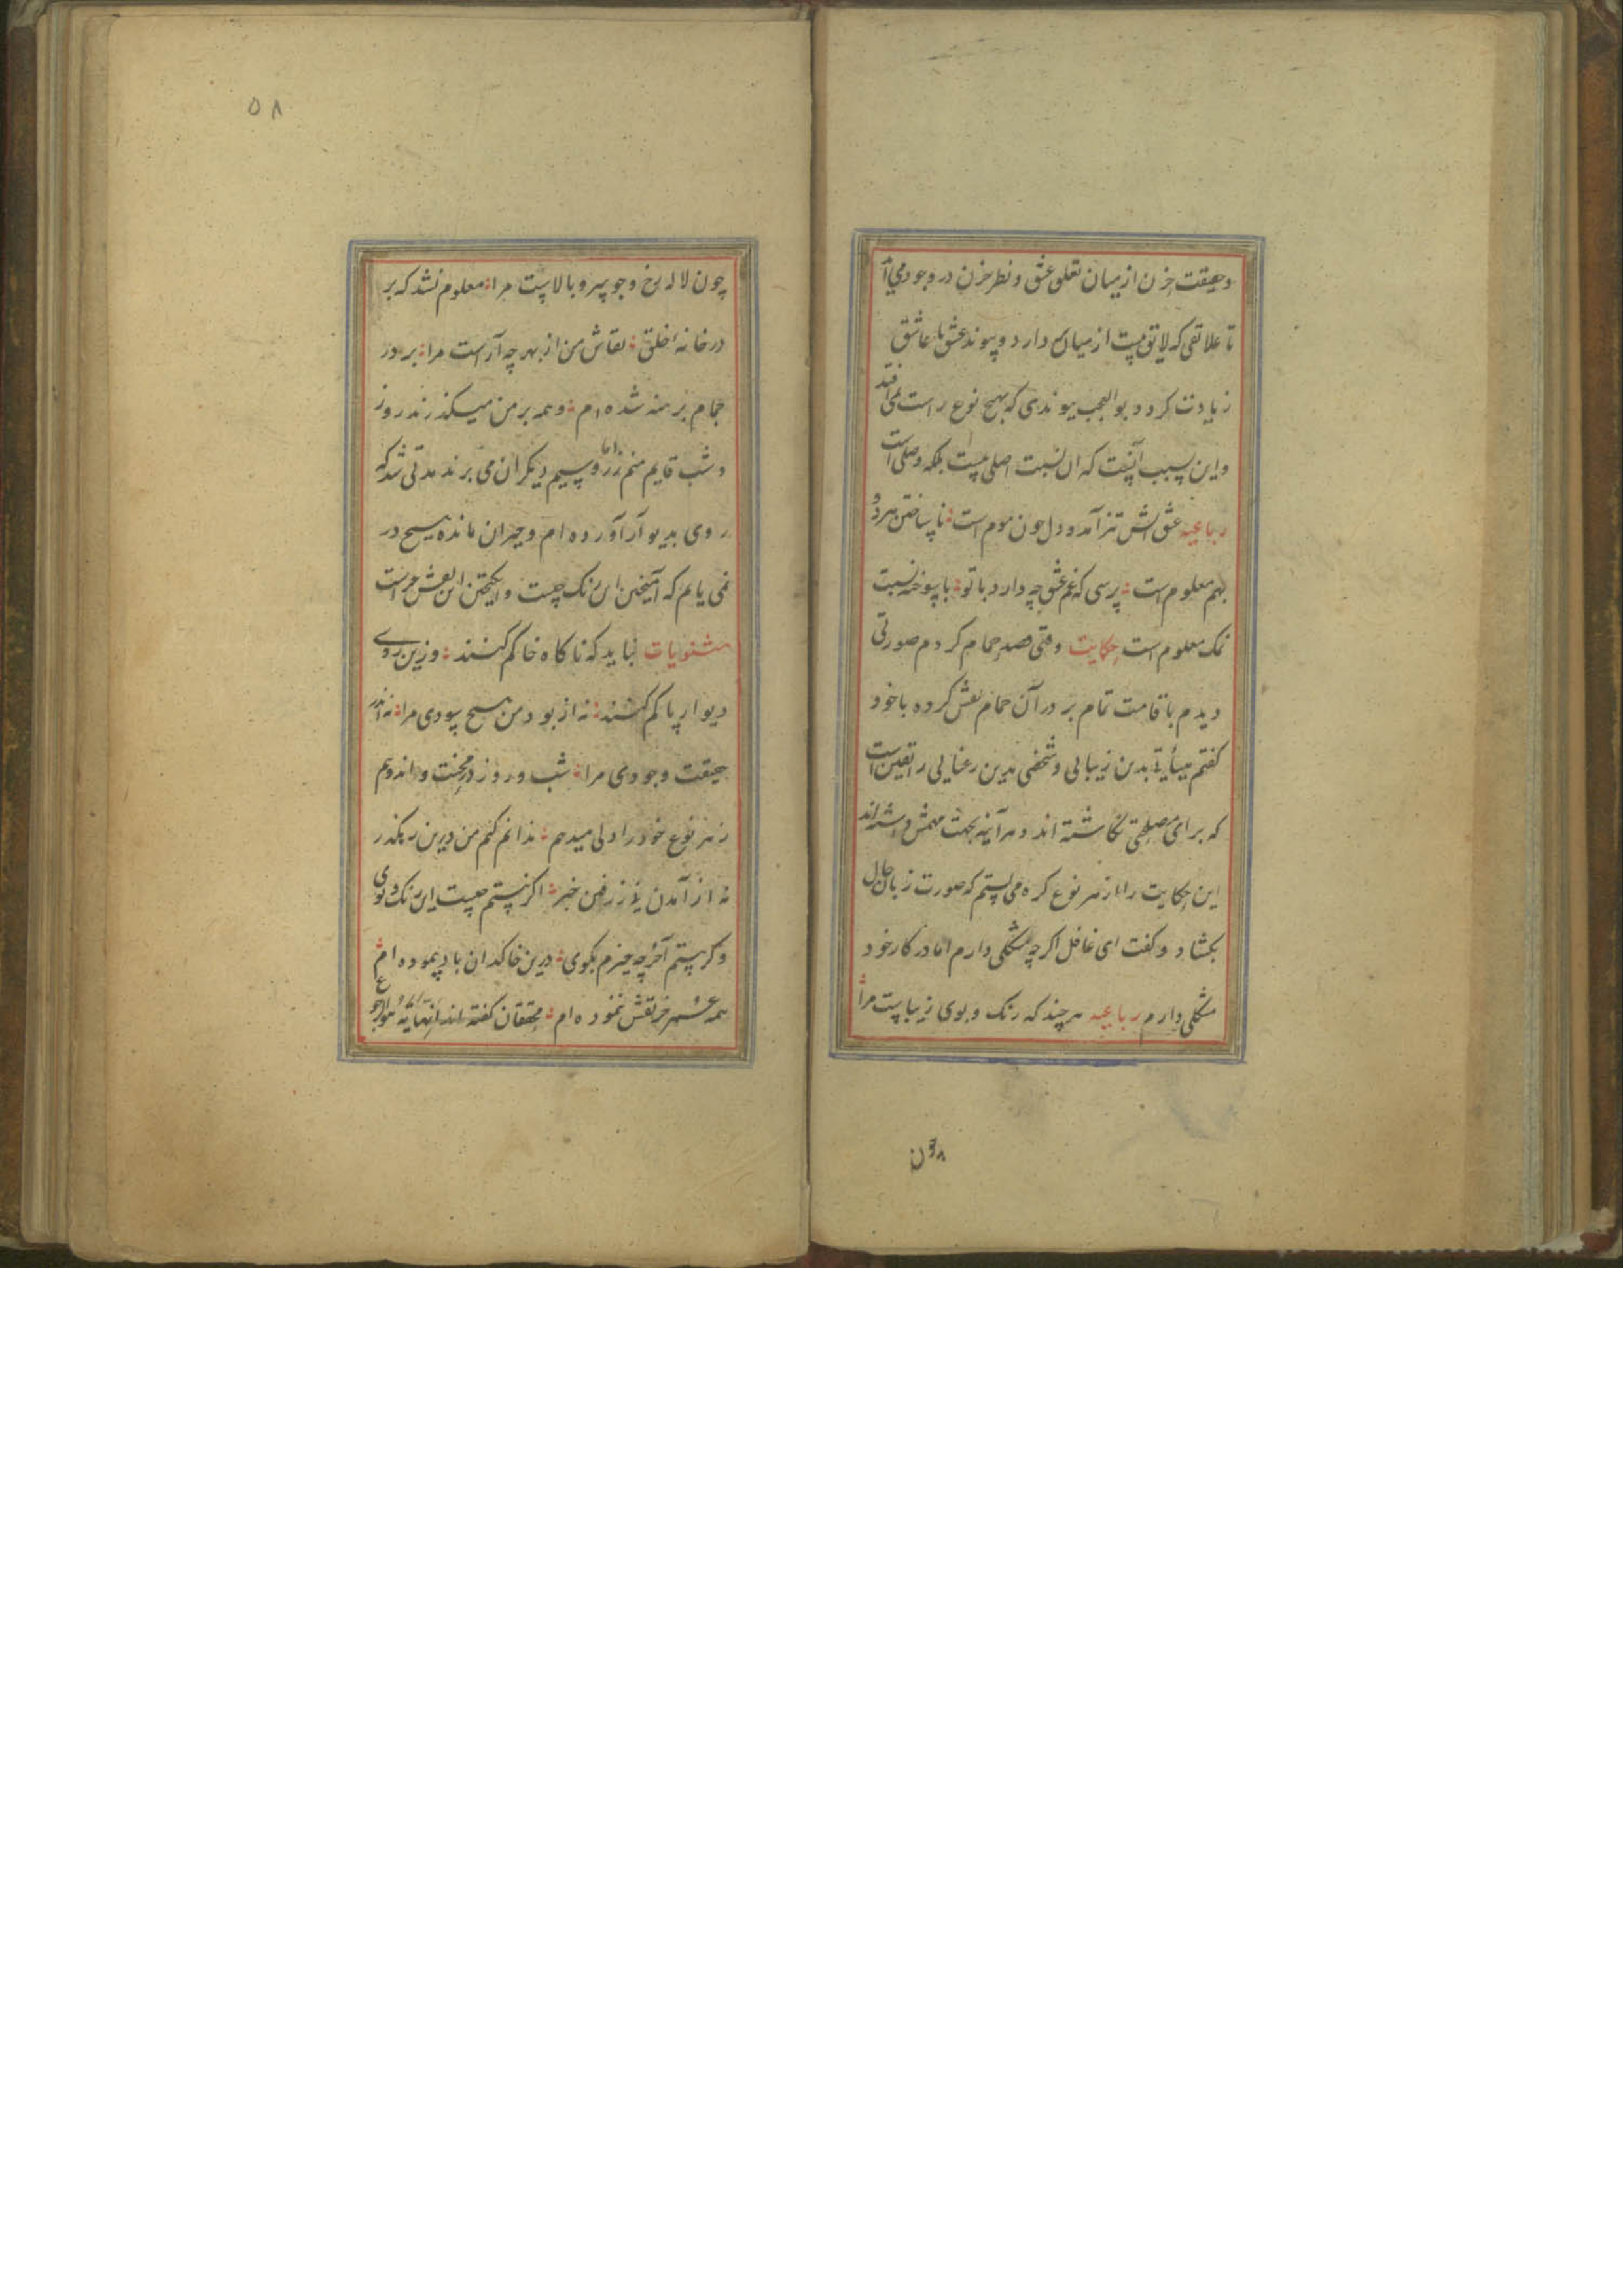 وحقیقت حزن از میان تعلق عشق و نظر حزن در وجود می آ
تا علائقی که لایق نیست از میان دارد و پیوند عشق با عاشق
زیادت کردد بوالعجب پیوندی که بهیچ نوع راست نمی افتد
و این سبب آنست که ان نسبت اصلی نیست بلکه وصلی است
رباعیه عشق اتش تیز آمد و دل چون موم است ناساختن هر دو
بهم معلوم است پرسی که غم عشق چه دارد با تو با سوخته نسبت
نمک معلوم است حکایت وقتی قصد حمام کردم صورتی
دیدم با قامت تمام بر در آن حمام نقش کرده با خود
کفتم هیأتی بدین زیبائی و شخصی بدین رعنایی را یقین است
که برای مصلحتی نکاشته اند و هر آینه بجهت مهمش داشته اند
این حکایت را از هر نوع کره می بستم که صورت زبان حال
بکشاد و کفت ای غافل اکر چه شکلی دارم اما در کار خود
مشکلی دارم رباعیه هر چند که رنک و بوی زیباست مرا
چون
۵۸
چون لاله رخ و چو سرو بالاست مرا معلوم نشد که بر
در خانه خلق نقاش من از بهر چه آراست مرا بر در
حمام برهنه شده ام و همه بر من میکذرند روز
و شب قایم منم اما زر و سیم دیکران می برند مدتی شد که
روی بدیوار آورده ام و حیران مانده هیچ در
نمی یابم که آمیختن این رنک چیست و انکیختن این نقش چراست
مثنویات نباید که ناکاه خاکم کنند وزین روی
دیوار پاکم کنند نه از بود من هیچ سودی مرا نه اندر
حقیقت وجودی مرا شب و روز در محنت و اندهم
ز هر نوع خود را دلی میدهم ندانم کیم من درین رهکذر
نه از آمدن نه ز رفتن خبر اکر نیستم چیست این رنک و بوی
وکر هستم آخر چه چیزم بکوی درین خاکدان باد پیموده ام
همه عمر جز نقش ننموده ام محققان کفته اند انها یه هو الرجو ع